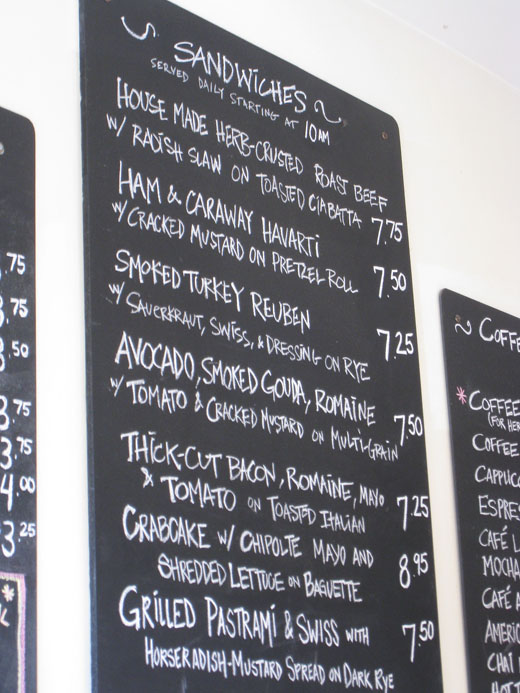 .75
.75
.50
3.75
3.75
4.00
3.25
SANDWICHES
SERVED DAILY STARTING AT 10AM
HOUSE MADE HERB-CRUSTED ROAST BEEF
W/ RADISH SLAW ON TOASTED CIABATTA 7.75
HAM & CARAWAY HAVARTI
W/ CRACKED MUSTARD ON PRETZEL ROLL 7.50
SMOKED TURKEY REUBEN
W/ SAUERKRAUT, SWISS, & DRESSING ON RYE 7.25
AVOCADO, SMOKED GOUDA, ROMAINE
W/ TOMATO & CRACKED MUSTARD ON MULTI-GRAIN 7.50
THICK-CUT BACON, ROMAINE, MAYO
& TOMATO ON TOASTED ITALIAN 7.25
CRABCAKE W/ CHIPOLTE MAYO AND
SHREDDED LETTUCE ON BAGUETTE 8.95
GRILLED PASTRAMI & SWISS WITH
HORSERADISH-MUSTARD SPREAD ON DARK RYE 7.50
COFFE
* COFFEE
(FOR HER
COFFEE
CAPPUCC
ESPRES
CAFÉ L
MOCHA
CAFÉ A
AMERIC
CHAI